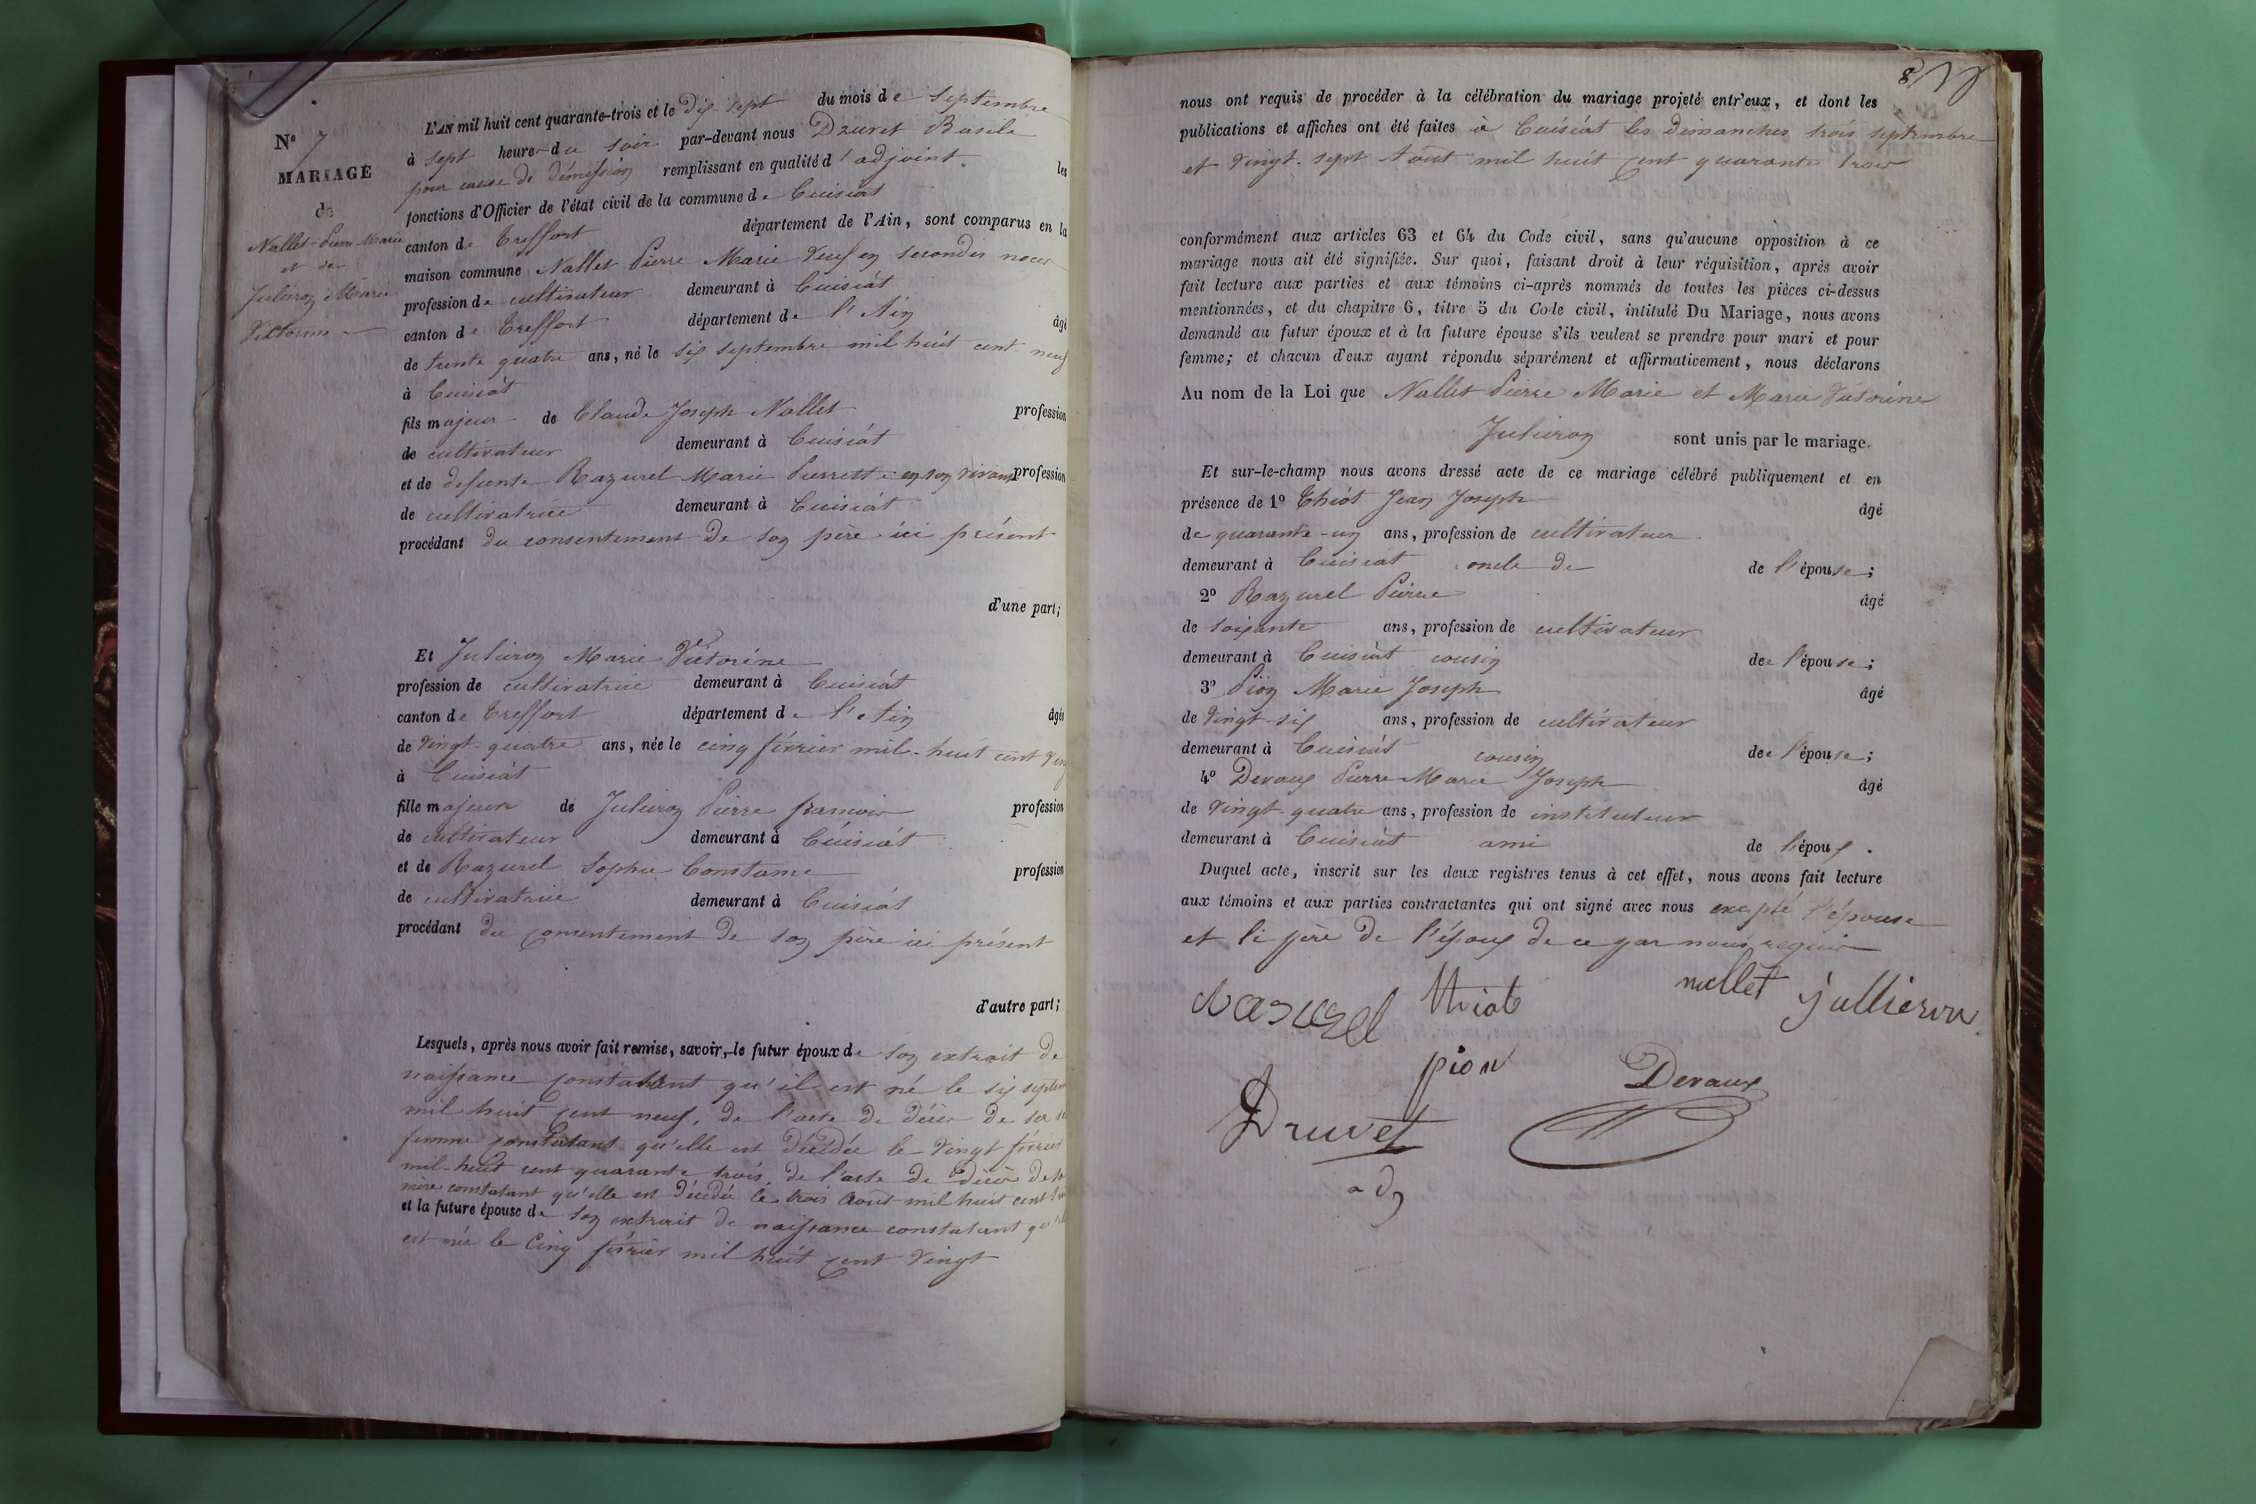 N° 7
MARIAGE
de
Nallet Pierre Marie
et de
Julieron Marie
Victorine
L'AN mil huit cent quarante-trois et le dix sept du mois de septembre
à sept heures du soir par-devant nous Druvet Basile
pour cause de démission remplissant en qualité d'adjoint les
fonctions d'Officier de l'état civil de la commune de Cuisiat
canton de Treffort département de l'Ain, sont comparus en la
maison commune Nallet Pierre Marie veuf en secondes noces
profession de cultivateur demeurant à Cuisiat
canton de Treffort département de l'Ain âgé
de trente quatre ans, né le six septembre mil huit cent neuf
à Cuisiat
fils majeur de Claude Joseph Nallet profession
de cultivateur demeurant à Cuisiat
et de defunte Razurel Marie Pierrette en son vivant profession
de cultivatrice demeurant à Cuisiat
procédant du consentement de son père ici présent
d'une part;
Et Julieron Marie Victorine
profession de cultivatrice demeurant à Cuisiat
canton de Treffort département de l'Ain âgée
de vingt-quatre ans, née le cinq février mil-huit cent
à Cuisiat
fille majeure de Julieron Pierre francois profession
de cultivateur demeurant à Cuisiat
et de Razurel Sophie Constance profession
de cultivatrice demeurant à Cuisiat
procédant du consentement de son père ici présent
d'autre part;
Lesquels, après nous avoir fait remise, savoir, le futur époux de son extrait de
naissance constatant qu'il est né le six
mil huit cent neuf, de l'acte de décès de sa
femme constatant qu'elle est décédée le vingt février
mil-huit cent quarante trois, de l'acte de décès de
mère constatant qu'elle est décédée le trois Août mil huit cent
et la future épouse de son extrait de naissance constatant
est née le cinq février mil huit cent vingt
8
nous ont requis de procéder à la célébration du mariage projeté entr'eux, et dont les
publications et affiches ont été faites à Cuisiat les dimanches trois septembre
et vingt-sept Août mil huit cent quarante trois
conformément aux articles 63 et 64 du Code civil, sans qu'aucune opposition à ce
mariage nous ait été signifiée. Sur quoi, faisant droit à leur réquisition, après avoir
fait lecture aux parties et aux témoins ci-après nommés de toutes les pièces ci-dessus
mentionnées, et du chapitre 6, titre 5 du Code civil, intitulé Du Mariage, nous avons
demandé au futur époux et à la future épouse s'ils veulent se prendre pour mari et pour
femme; et chacun d'eux ayant répondu séparément et affirmativement, nous déclarons
Au nom de la Loi que Nallet Pierre Marie et Marie Victorine
Julieron sont unis par le mariage.
Et sur-le-champ nous avons dressé acte de ce mariage célébré publiquement et en
présence de 1° Thiot Jean Joseph âgé
de quarante-un ans, profession de cultivateur
demeurant à Cuisiat oncle de de l'épouse;
2° Razurel Pierre âgé
de soixante ans, profession de cultivateur
demeurant à Cuisiat cousin de l'épouse;
3° Pion Marie Joseph âgé
de vingt-six ans, profession de cultivateur
demeurant à Cuisiat cousin de l'épouse;
4° Devaux Pierre Marie Joseph âgé
de vingt-quatre ans, profession de instituteur
demeurant à Cuisiat ami de l'époux.
Duquel acte, inscrit sur les deux registres tenus à cet effet, nous avons fait lecture
aux témoins et aux parties contractantes qui ont signé avec nous excepté l'épouse
et le père de l'époux de ce par nous requis
Razurel Thiot nallet jullieron
pion Devaux
Druvet
adj